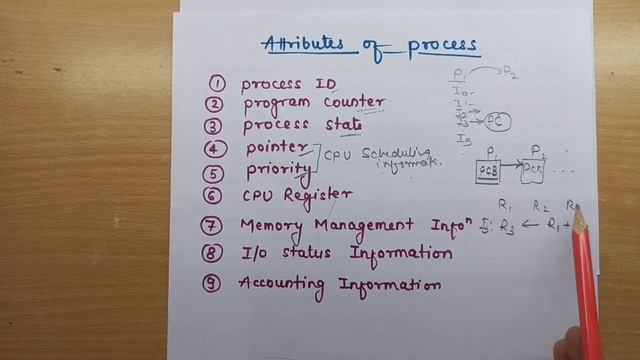 Attributes of process
① process ID
② program counter
③ process state
④ pointer
⑤ priority
CPU Scheduling
informatn.
⑥ CPU Register
⑦ Memory Management Infoⁿ
⑧ I/o status Information
⑨ Accounting Information
P₁ P₂
I₀
I₁
I₂
I₃ PC
I₅
P₁ P₂
PCB PCB ...
R₁ R₂
I₃: R₃ ← R₁ +